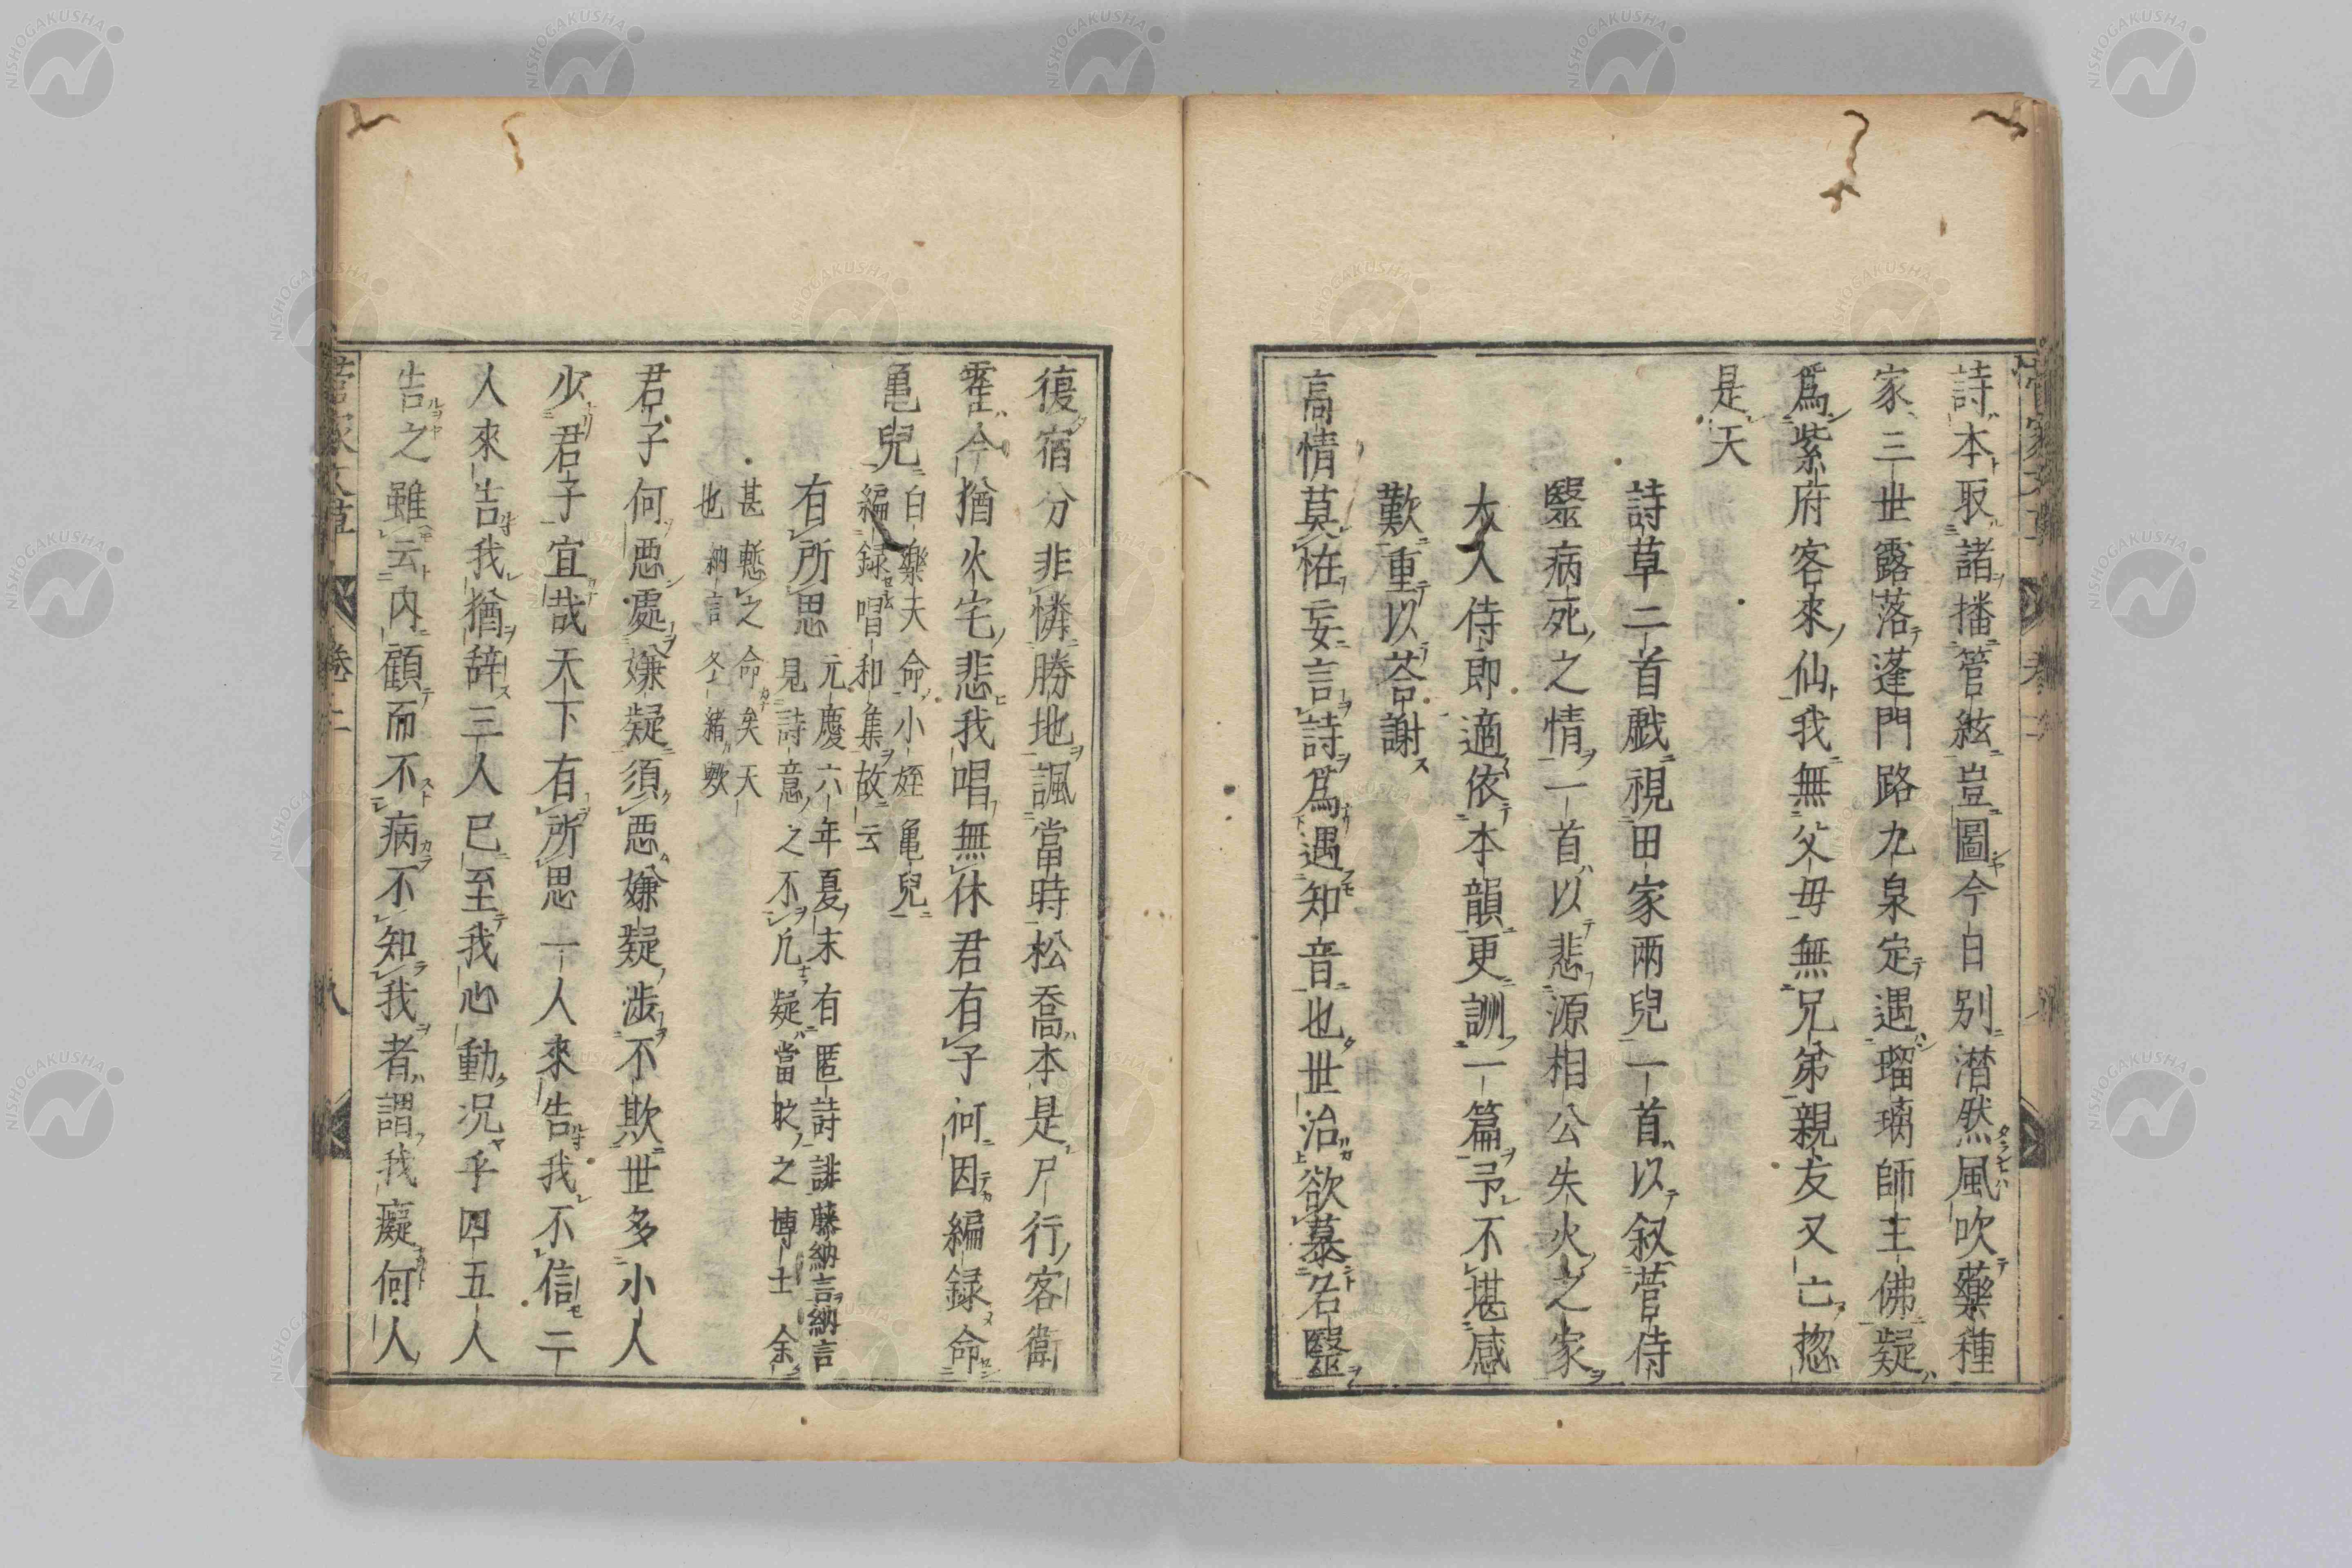 詩本取諸播管絃豈圖今日別潜然風吹藥種
家三世露落蓬門路九泉定遇瑠璃師主佛疑
爲紫府客來仙我無父母無兄弟親友又亡惣
是天
詩草二首戯視田家兩兒一首以叙菅侍
毉病死之情一首以悲源相公失火之家
大入侍郎適依本韻更訓一篇予不堪感
歎重以荅謝
高情莫恠妄言詩爲遇知音也世治欲慕名毉
復宿分非憐勝地諷當時松喬本是尸行客衛
霍今猶火宅悲我唱無休君有子何因編録命
亀兒
白樂天命小姪亀兒
編録唱和集故云
有所思
元慶六年夏末有匿詩誹藤納言納言
見詩意之不凢疑當時之博士余
甚慙之命矣天
也納言冬緒歟
君子何惡處嫌疑須惡嫌疑涉不欺世多小人
少君子宜哉天下有所思一人來告我不信二
人來告我猶辞三人已至我心動况乎四五人
告之雖云内顧而不病不知我者謂我癡何人
菅家文草 卷二 八
NISHOGAKUSHA